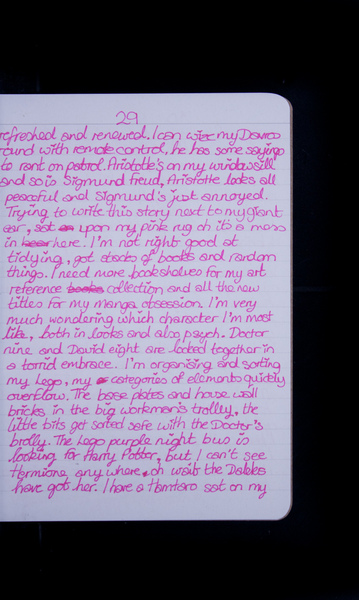 29
refreshed and renewed. I can wizz my Davros
round with remote control, he has some sayings
to rant on patrol. Aristotle's on my windowsill
and so is Sigmund Freud, Aristotle looks all
peaceful and Sigmund's just annoyed.
Trying to write this story next to my giant
ear, sat upon my pink rug oh it's a mess
in here! I'm not right good at
tidying, got stacks of books and random
things. I need more bookshelves for my art
reference books collection and all the new
titles for my manga obsession. I'm very
much wondering which character I'm most
like, both in looks and also psych. Doctor
nine and David eight are locked together in
a torrid embrace.. I'm organising and sorting
my Lego, my categories of elements quickly
overflow. The base plates and house wall
bricks in the big workmen's trolley, the
little bits get sorted safe with the Doctor's
brolly. The Lego purple night bus is
looking for Harry Potter, but I can't see
Hermione any where, oh wait the Daleks
have got her. I have a Hamtaro sat on my